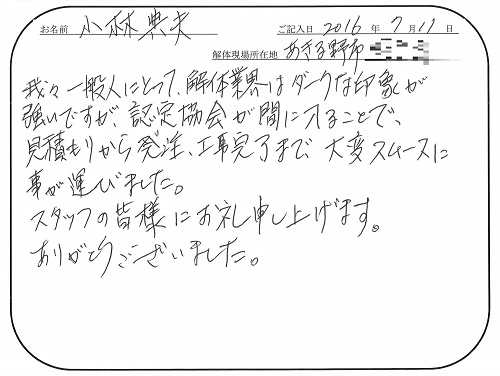 お名前 小林典夫 ご記入日 2016年7月11日
解体現場所在地 あきる野市
我々一般人にとって、解体業界はダークな印象が
強いですが、認定協会が間に入ることで、
見積もりから発注、工事完了まで大変スムースに
事が運びました。
スタッフの皆様にお礼申し上げます。
ありがとうございました。